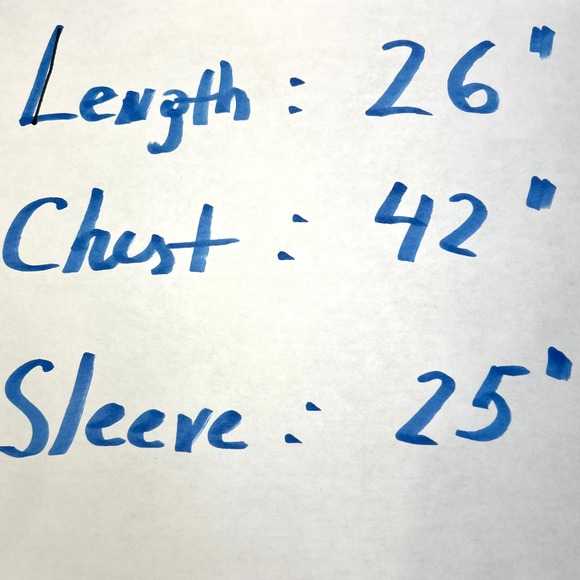 Length: 26"
Chest: 42"
Sleeve: 25"